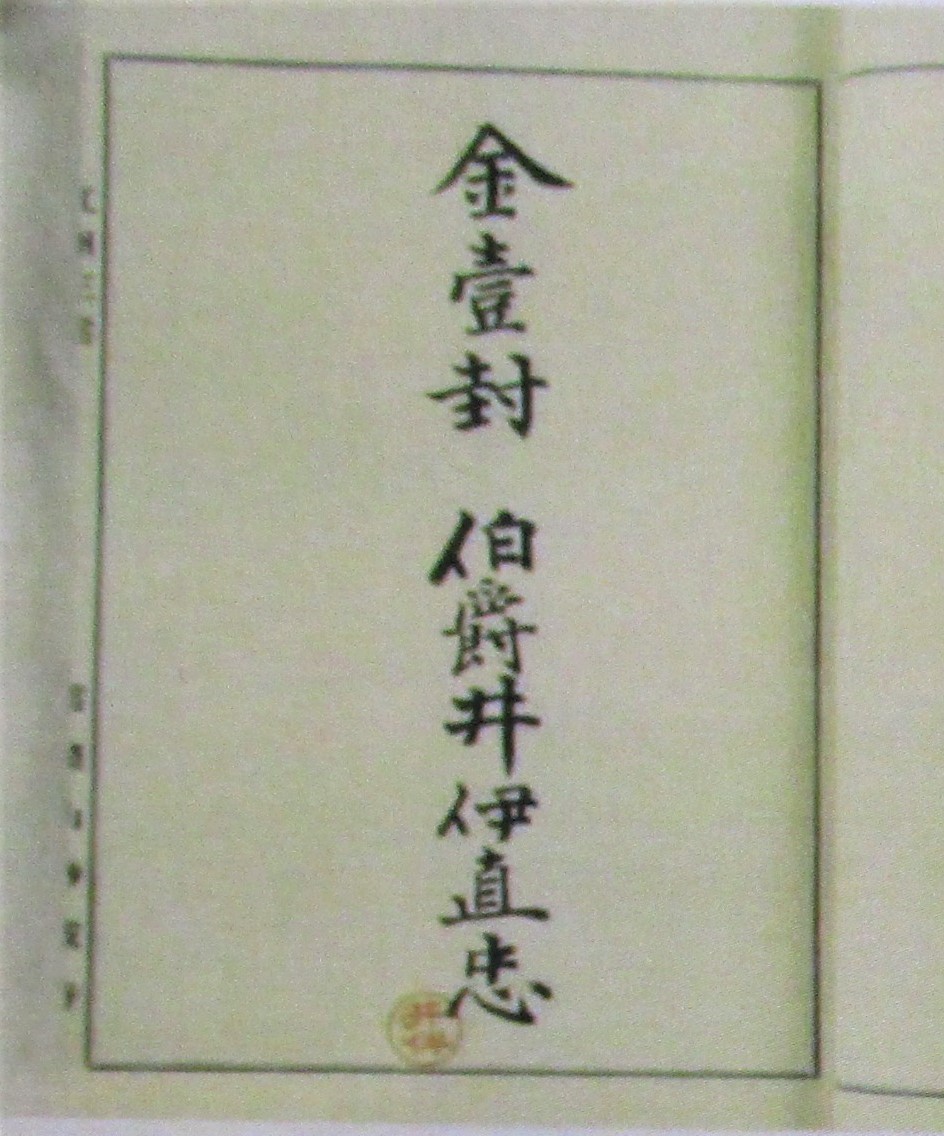 金壹封 伯爵井伊直忠
井伊